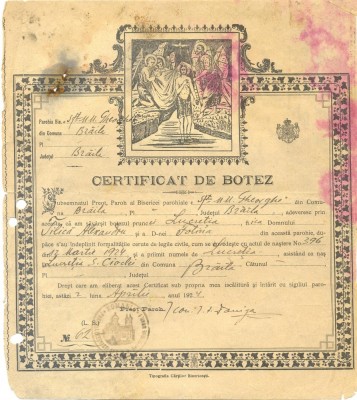 Parohia Sf. M. M. Gheorghe
din Comuna
Brăila
Pl.
Județul
Brăila
CERTIFICAT DE BOTEZ
Subsemnatul Preot, Paroh al Bisericei parohiale Sf. M. M. Gheorghe din Comuna
Brăila Pl. Județul Brăila, adeverez prin
aceasta, că am săvârșit botezul pruncei Lucreția, a Domnului
Alexandru și a D-nei din această parohie, după
ce s'au îndeplinit formalitățile cerute de legile civile, cum se dovedește cu extractul de naștere No 296
din 17 Martie 1924 și a primit numele de Lucreția asistând ca naș
din Comuna Brăila Cătunul
Pl. Județul
Drept care am eliberat acest Certificat sub propria mea iscălitură și întărit cu sigiliul parohiei,
astăzi 2 luna Aprilie anul 1924
Preot Paroh,
(L. S.)
No.
Tipografia Cărților Bisericești.